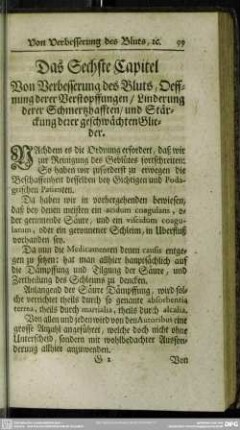 Von Verbesserung des Bluts, ꝛc. 99
Das Sechste Capitel
Von Verbesserung des Bluts, Oeff-
nung derer Verstopffungen / Linderung
derer Schmertzhafften / und Stär-
ckung derer geschwächten Glie-
der.
NAchdem es die Ordnung erfordert, daß wir
zur Reinigung des Geblütes fortschreiten:
So haben wir zuförderst zu erwegen die
Beschaffenheit desselben bey Gichtigen und Poda-
grischen Patienten.
Da haben wir in vorhergehenden bewiesen,
daß bey denen meisten ein acidum coagulans, o-
der gerinnende Säure, und ein viscidum coagu-
latum, oder ein geronnener Schleim, in Uberfluß
vorhanden sey.
Da nun die Medicamenten denen causis entge-
gen zu setzen: hat man allhier hauptsächlich auf
die Dämpffung und Tilgung der Säure, und
Zertheilung des Schleims zu dencken.
Anlangend der Säure Dämpffung, wird sol-
che verrichtet theils durch so genante absorbentia
terrea, theils durch martialia, theils durch alcalia.
Von allen und jeden wird von den Autoribus eine
grosse Anzahl angeführet, welche doch nicht ohne
Unterscheid, sondern mit wohlbedachter Abson-
derung allhier anzuwenden.
G 2 Von